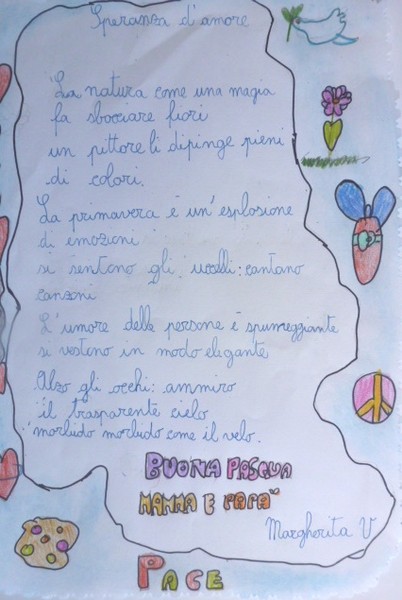 Speranza d'amore
La natura come una magia
fa sbocciare fiori
un pittore li dipinge pieni
di colori.
La primavera è un'esplosione
di emozioni
si sentono gli uccelli: cantano
canzoni
L'umore delle persone è spumeggiante
si vestono in modo elegante
Alzo gli occhi: ammiro
il trasparente cielo
morbido morbido come il velo.
BUONA PASQUA
MAMMA E PAPA'
Margherita V
PACE